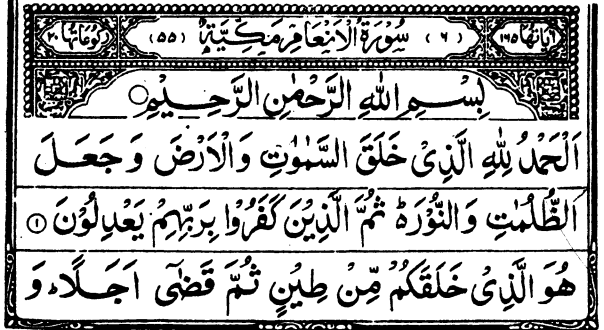 اٰیاتها ۱۶۵ (۶) سُوْرَةُ الْاَنْعَامِ مَكِّیَّةٌ (۵۵) رکوعاتها ۲۰
بِسْمِ اللّٰهِ الرَّحْمٰنِ الرَّحِیْمِ
اَلْحَمْدُ لِلّٰهِ الَّذِیْ خَلَقَ السَّمٰوٰتِ وَالْاَرْضَ وَجَعَلَ
الظُّلُمٰتِ وَالنُّوْرَ۬ؕ ثُمَّ الَّذِیْنَ كَفَرُوْا بِرَبِّهِمْ یَعْدِلُوْنَ ۱
هُوَ الَّذِیْ خَلَقَكُمْ مِّنْ طِیْنٍ ثُمَّ قَضٰۤی اَجَلًا ؕ وَ